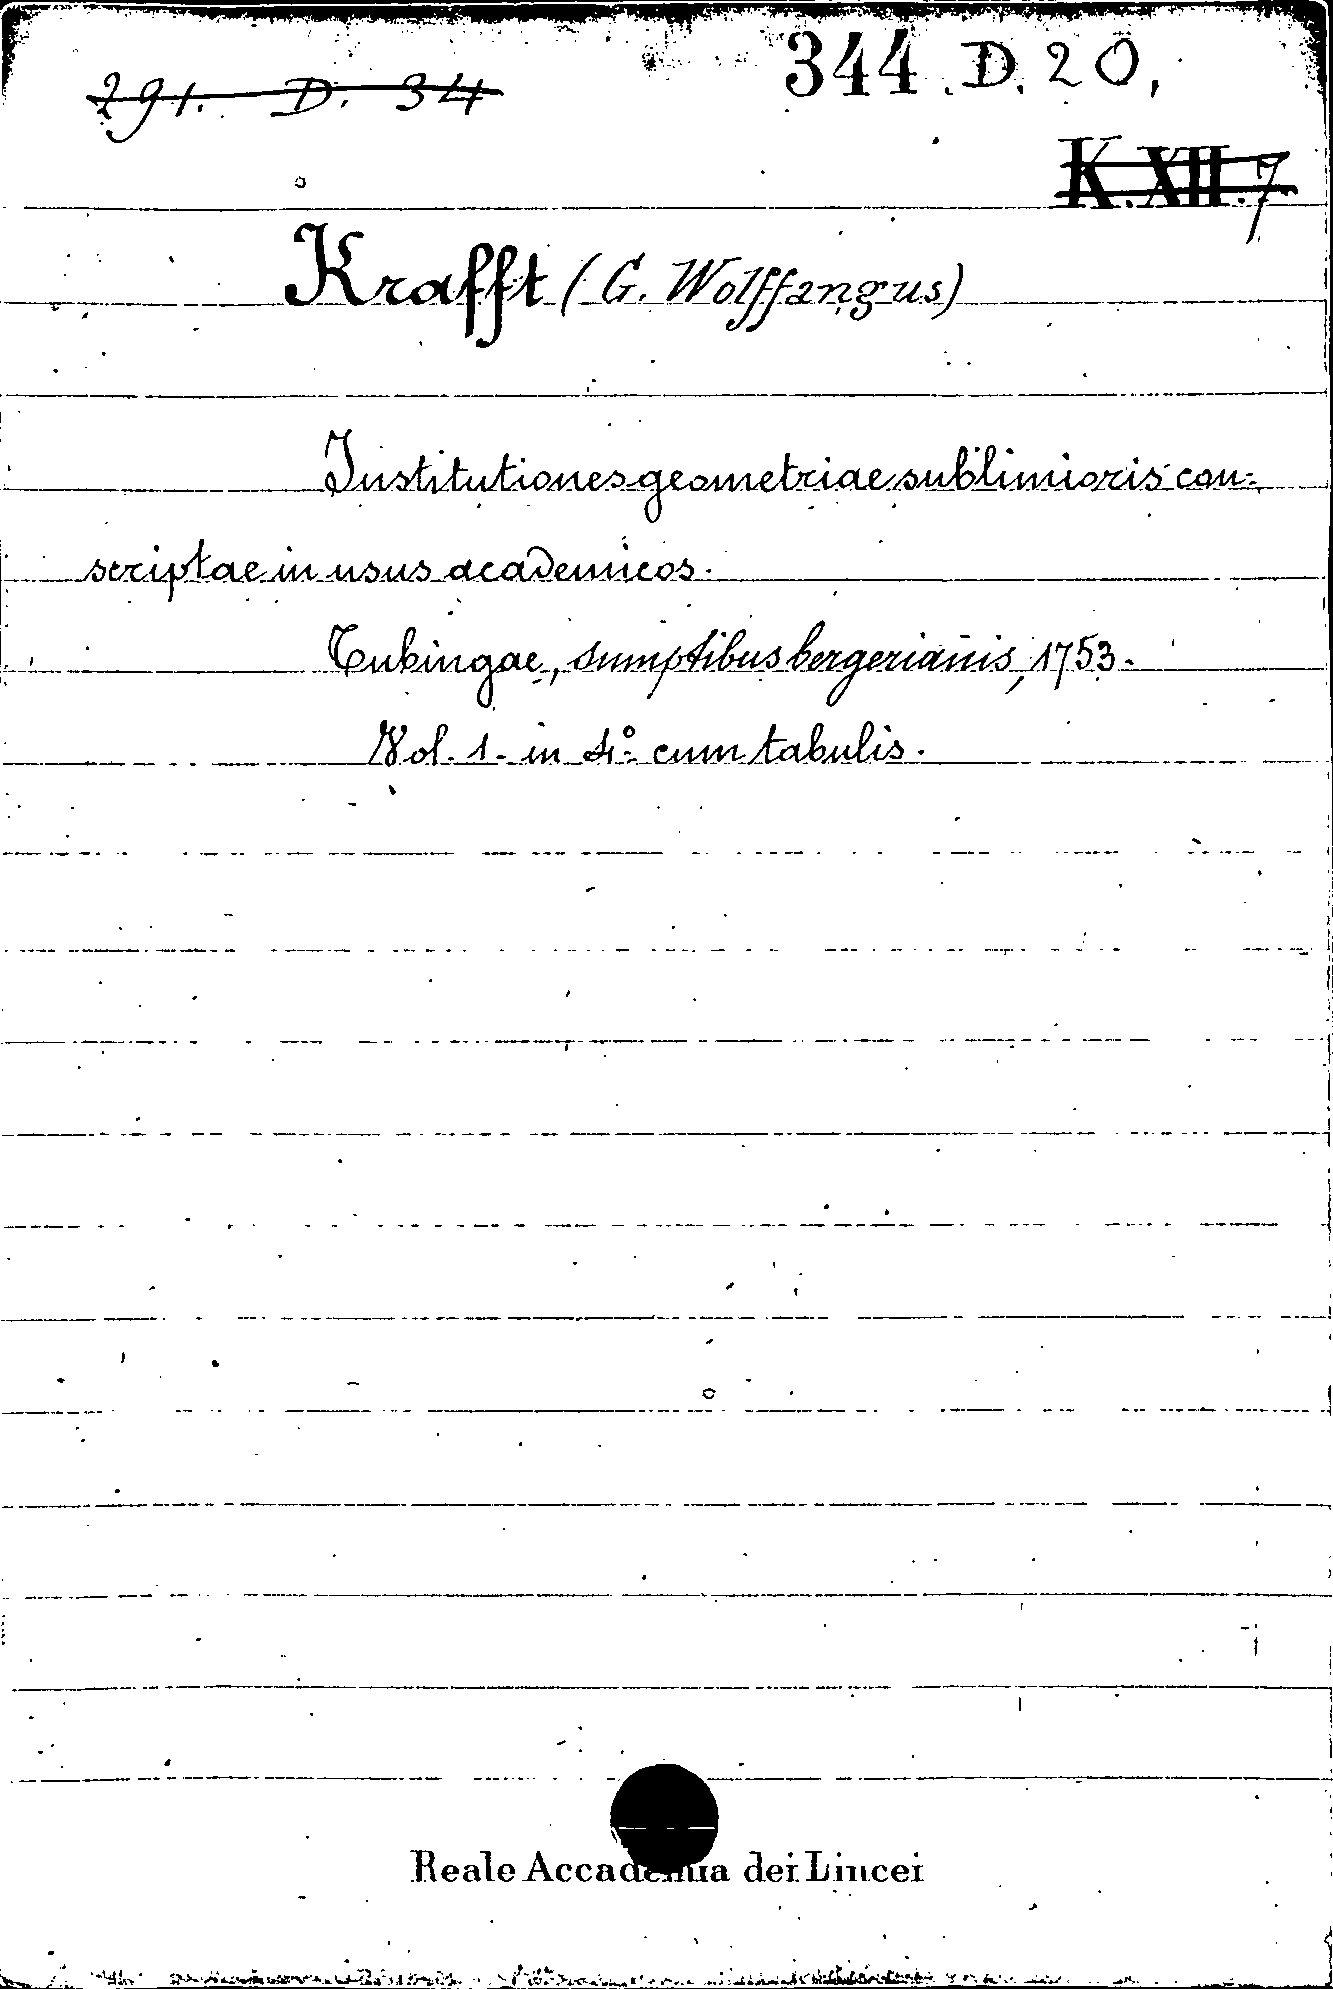 291. D. 34
344. D. 20,
K. XII. 7
Krafft (G. Wolffangus)
Institutiones geometriae sublimioris con-
scriptae in usus academicos.
Tubingae, sumptibus bergerianis, 1753.
Vol. 1. in 4.° cum tabulis.
Reale Accademia dei Lincei